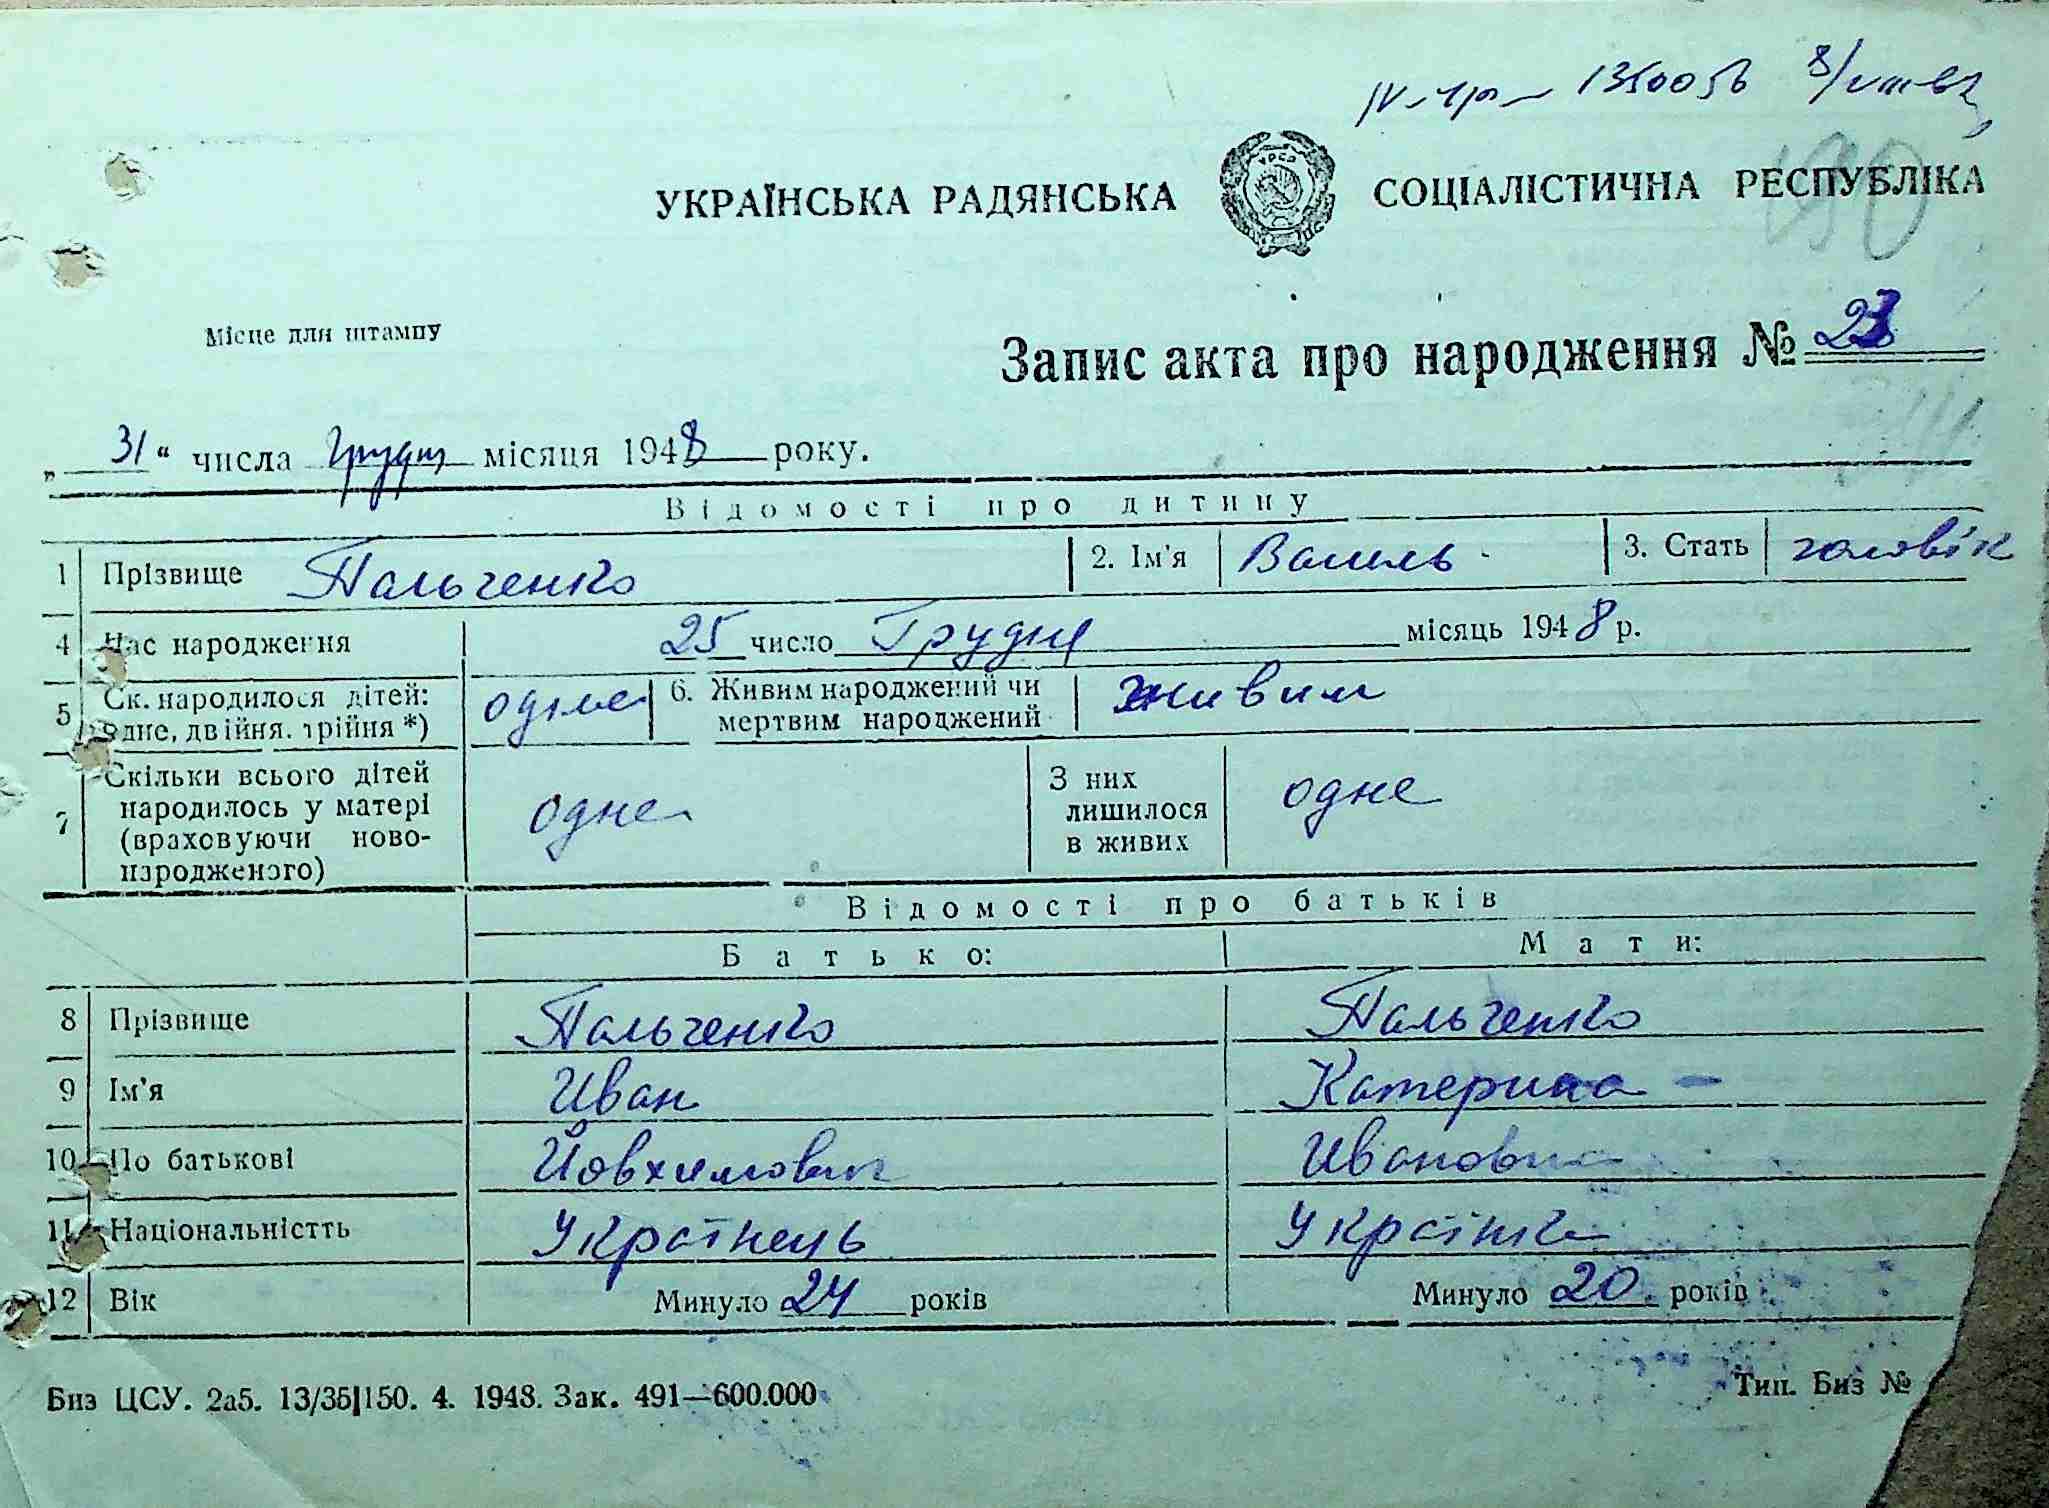 135005в
УКРАЇНСЬКА РАДЯНСЬКА СОЦІАЛІСТИЧНА РЕСПУБЛІКА
УРСР
Місце для штампу
Запис акта про народження № 23
„ 31 “ числа грудня місяця 1948 року.
Відомості про дитину
1 Прізвище Пальченко 2. Ім'я Василь 3. Стать чоловік
4 Час народження 25 число Грудня місяць 1948 р.
5 Ск. народилося дітей: одне, двійня, трійня *) одне 6. Живим народжений чи мертвим народжений живим
7 Скільки всього дітей народилось у матері (враховуючи ново-народженого) одне З них лишилося в живих одне
Відомості про батьків
Батько: Мати:
8 Прізвище Пальченко Пальченко
9 Ім'я Иван Катерина
10 По батькові Йовхимович Ивановна
11 Національністть Українець Українка
12 Вік Минуло 24 років Минуло 20 років
Биз ЦСУ. 2а5. 13/35|150. 4. 1948. Зак. 491—600.000 Тип. Биз №